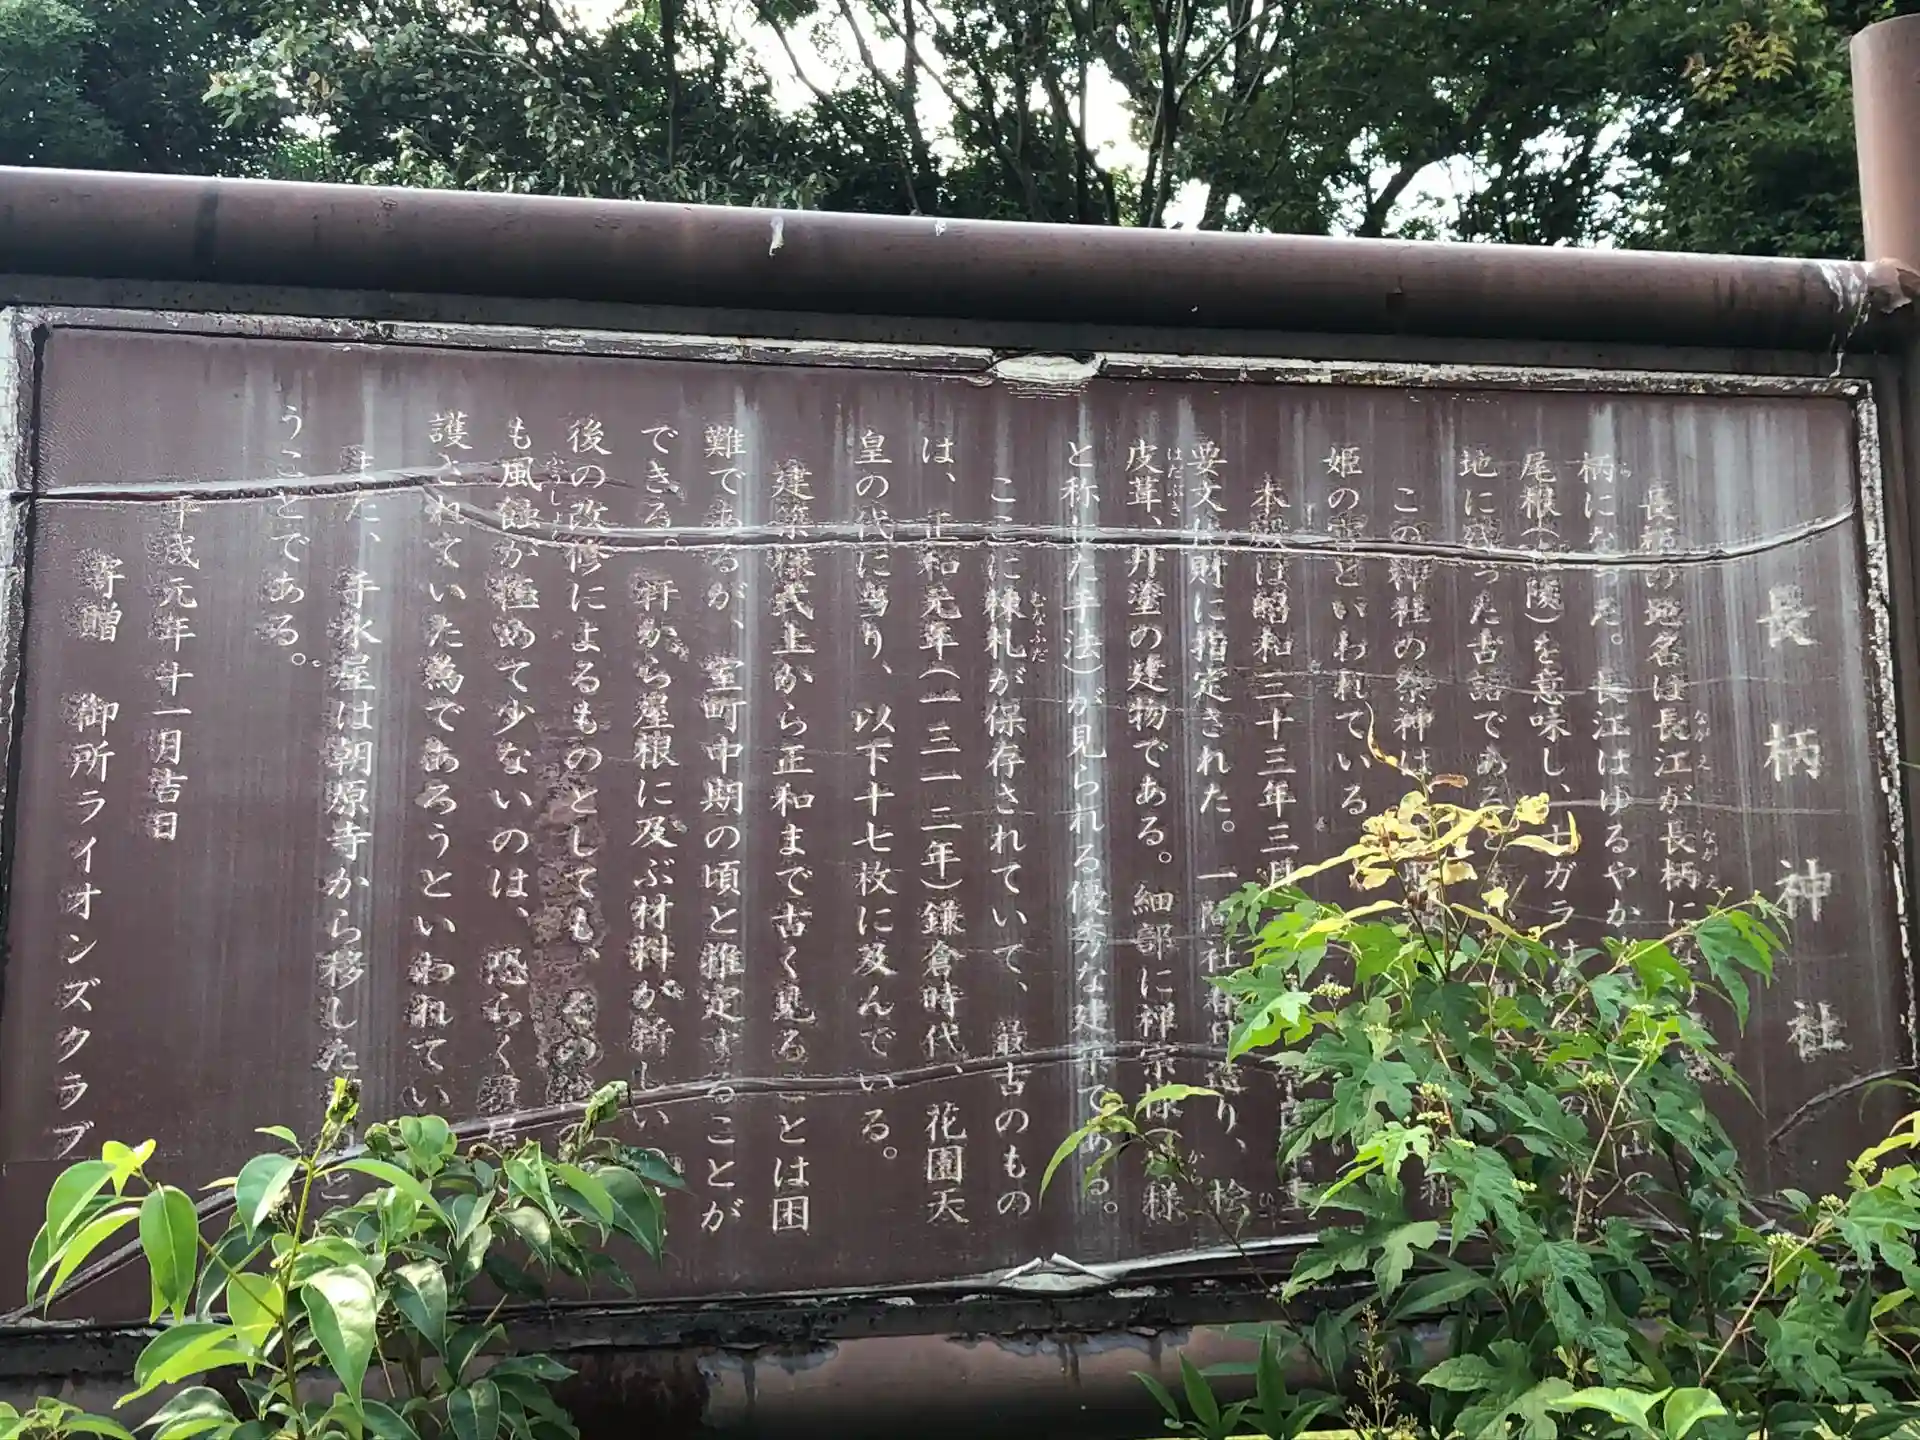 長柄神社
長柄の地名は長江が長柄になり
柄になった。長江はゆるやか 山の
尾根(丘陵)を意味し、ナガラは
地に残った古語である
この神社の祭神は
姫の 
といわれている
本殿は昭和三十三年三月 重
要文化財に指定された。一間社春日造り、桧
皮葺、丹塗の建物である。細部に禅宗様(唐様
と称した手法)が見られる優秀な建築である。
ここに棟札が保存されていて、最古のもの
は、正和元年(一三一二年)鎌倉時代、花園天
皇の代に当り、以下十七枚に及んでいる。
建築様式上から正和まで古く見ることは困
難であるが、室町中期の頃と推定することが
できる。軒から屋根に及ぶ材料が新しい
後の改修によるものとしても、その他の
も風蝕が極めて少ないのは、恐らく覆屋
護されていた為であろうといわれてい
また、手水屋は朝原寺から移した と
うことである。
平成元年十一月吉日
寄贈 御所ライオンズクラブ